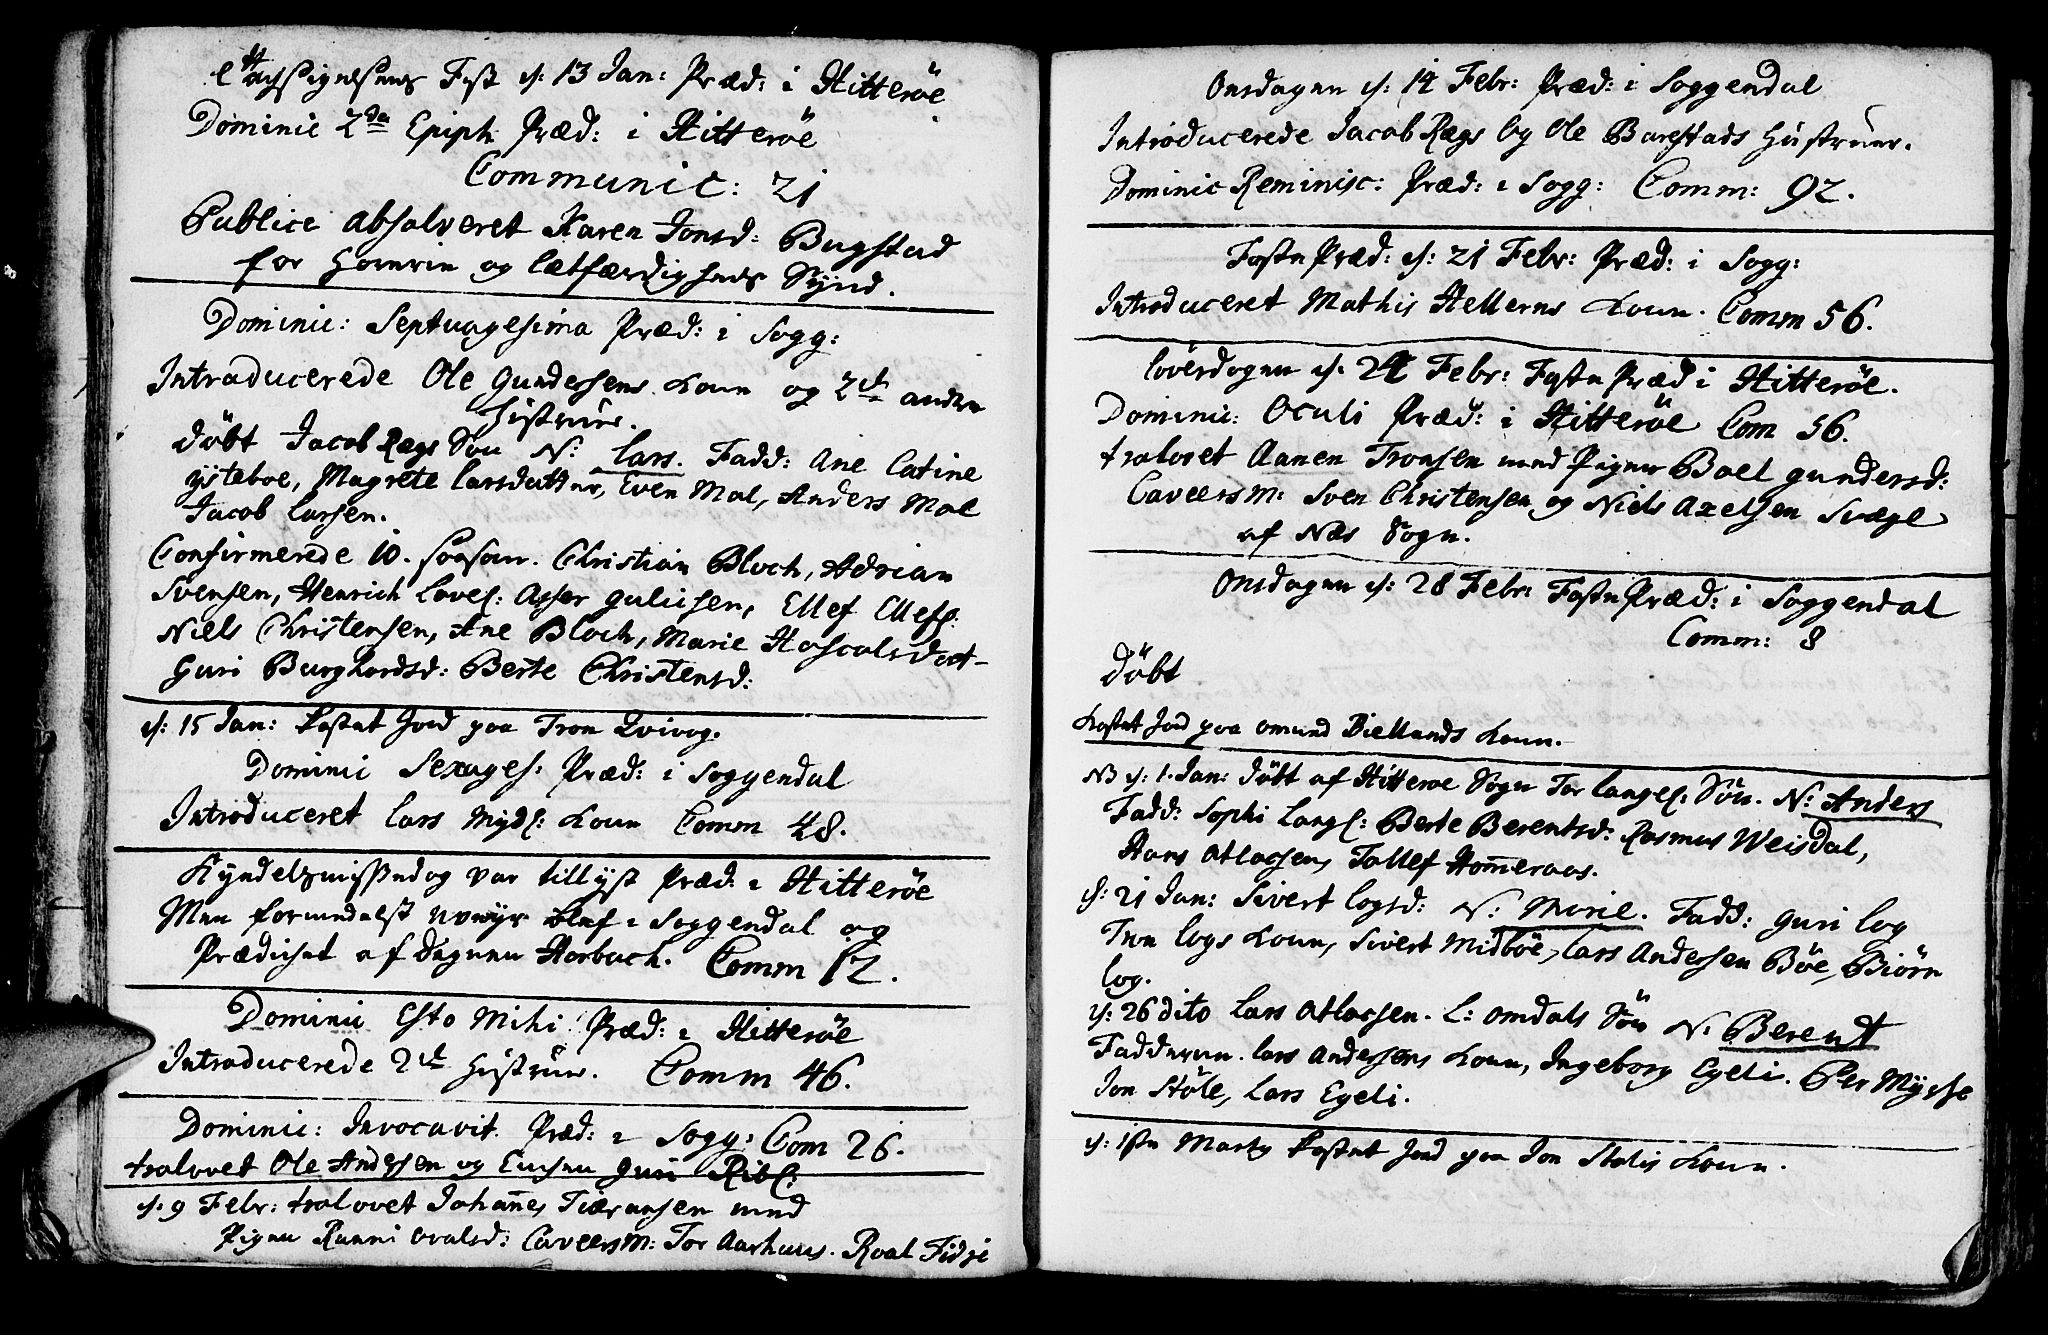 Tachsigelsens Fest d: 13 Jan: Præd: i Hitterøe
Dominic 2da Epiph: Præd: i Hitterøe
Communic: 21
Publice absolveret Karen Jonsd: Bugstad
for Horerie og lætfærdigheds Synd.
Dominic: Septuagesima Præd: i Sogg:
Introducerede Ole Gundersens Kone og 2de andre
Hustruer.
Døbt Jacob Rægs Søn N: Lars. Fadd: Ane Catine
Ysteboe, Magrete Larsdatter, Even Mal, Anders Mal
Jacob Larsen.
Confirmerede 10. Personer. Christian Bloch, Adrian
Svensen, Henrich Loves: Asser Gulicsen, Ellef Ellefs:
Niels Christensen, Ane Bloch, Marie Hascalsdat-
Guri Burghordsd: Berte Christensd:
d: 15 Jan: kastet Jord paa Tron Qvivog.
Dominic Sexages: Præd: i Soggendal
Introduceret Lars Myds: Kone Comm 48.
Kyndelsmissedag var tillyst Præd: i Hitterøe
Men formedelst uveyr blef i Soggendal og
Prædichet af Degnen Horbach. Comm 12.
Dominic Esto Mihi Præd: i Hitterøe
Introducerede 2de Hustruer. Comm 46.
Dominic: Invocavit. Præd: i Sogg: Com 26.
trolovet Ole Andersen og Enchen Guri Ribs:
d: 9 Febr: trolovet Johannes Tiøransen med
Pigen Ranni Oralsd: Caveers M: Tor Aarhuus. Roal Fidje
Onsdagen d: 14 Febr: Præd: i Soggendal
Introducerede Jacob Rægs og Ole Barstads Hustruer.
Dominic Reminisc: Præd: i Sogg: Comm: 92.
Faste Præd: d: 21 Febr: Præd: i Sogg:
Introduceret Mathis Hellerns Kone. Comm 56.
Løverdagen d: 24 Febr: Faste Præd i Hitterøe.
Dominic: Oculi Præd: i Hitterøe Com 56.
trolovet Aanen Tronsen med Pigen Boel Gundersd:
Caveers M: Sven Christensen og Niels Axelsen Svege
af Næs Sogn.
Onsdagen d: 28 Febr: Faste Præd: i Soggendal
Comm: 8
Døbt
Kastet Jord paa Omund Biellands Kone.
NB d: 1. Jan: døbt af Hitterøe Sogn Tor Langes: Søn. N: Anders
Fadd: Sophi Langs: Berte Berentsd: Rasmus Weisdal,
Hans Atlagsen, Tollef Hommeraas.
d: 21 Jan: Sivert Logsd: N: Marie. Fadd: Guri Log
Tron Logs Kone, Sivert Midbøe, Lars Andersen Bøe, Biørn
Log.
d: 26 dito Lars Atlagsen. L: Omdals Søn N: Berent
Fadderne. Lars Andersens Kone, Ingeborg Egeli. Per Mysse
Jon Støle, Lars Egeli.
d: 1ste Marty kastet Jord paa Jon Stolis Kone.